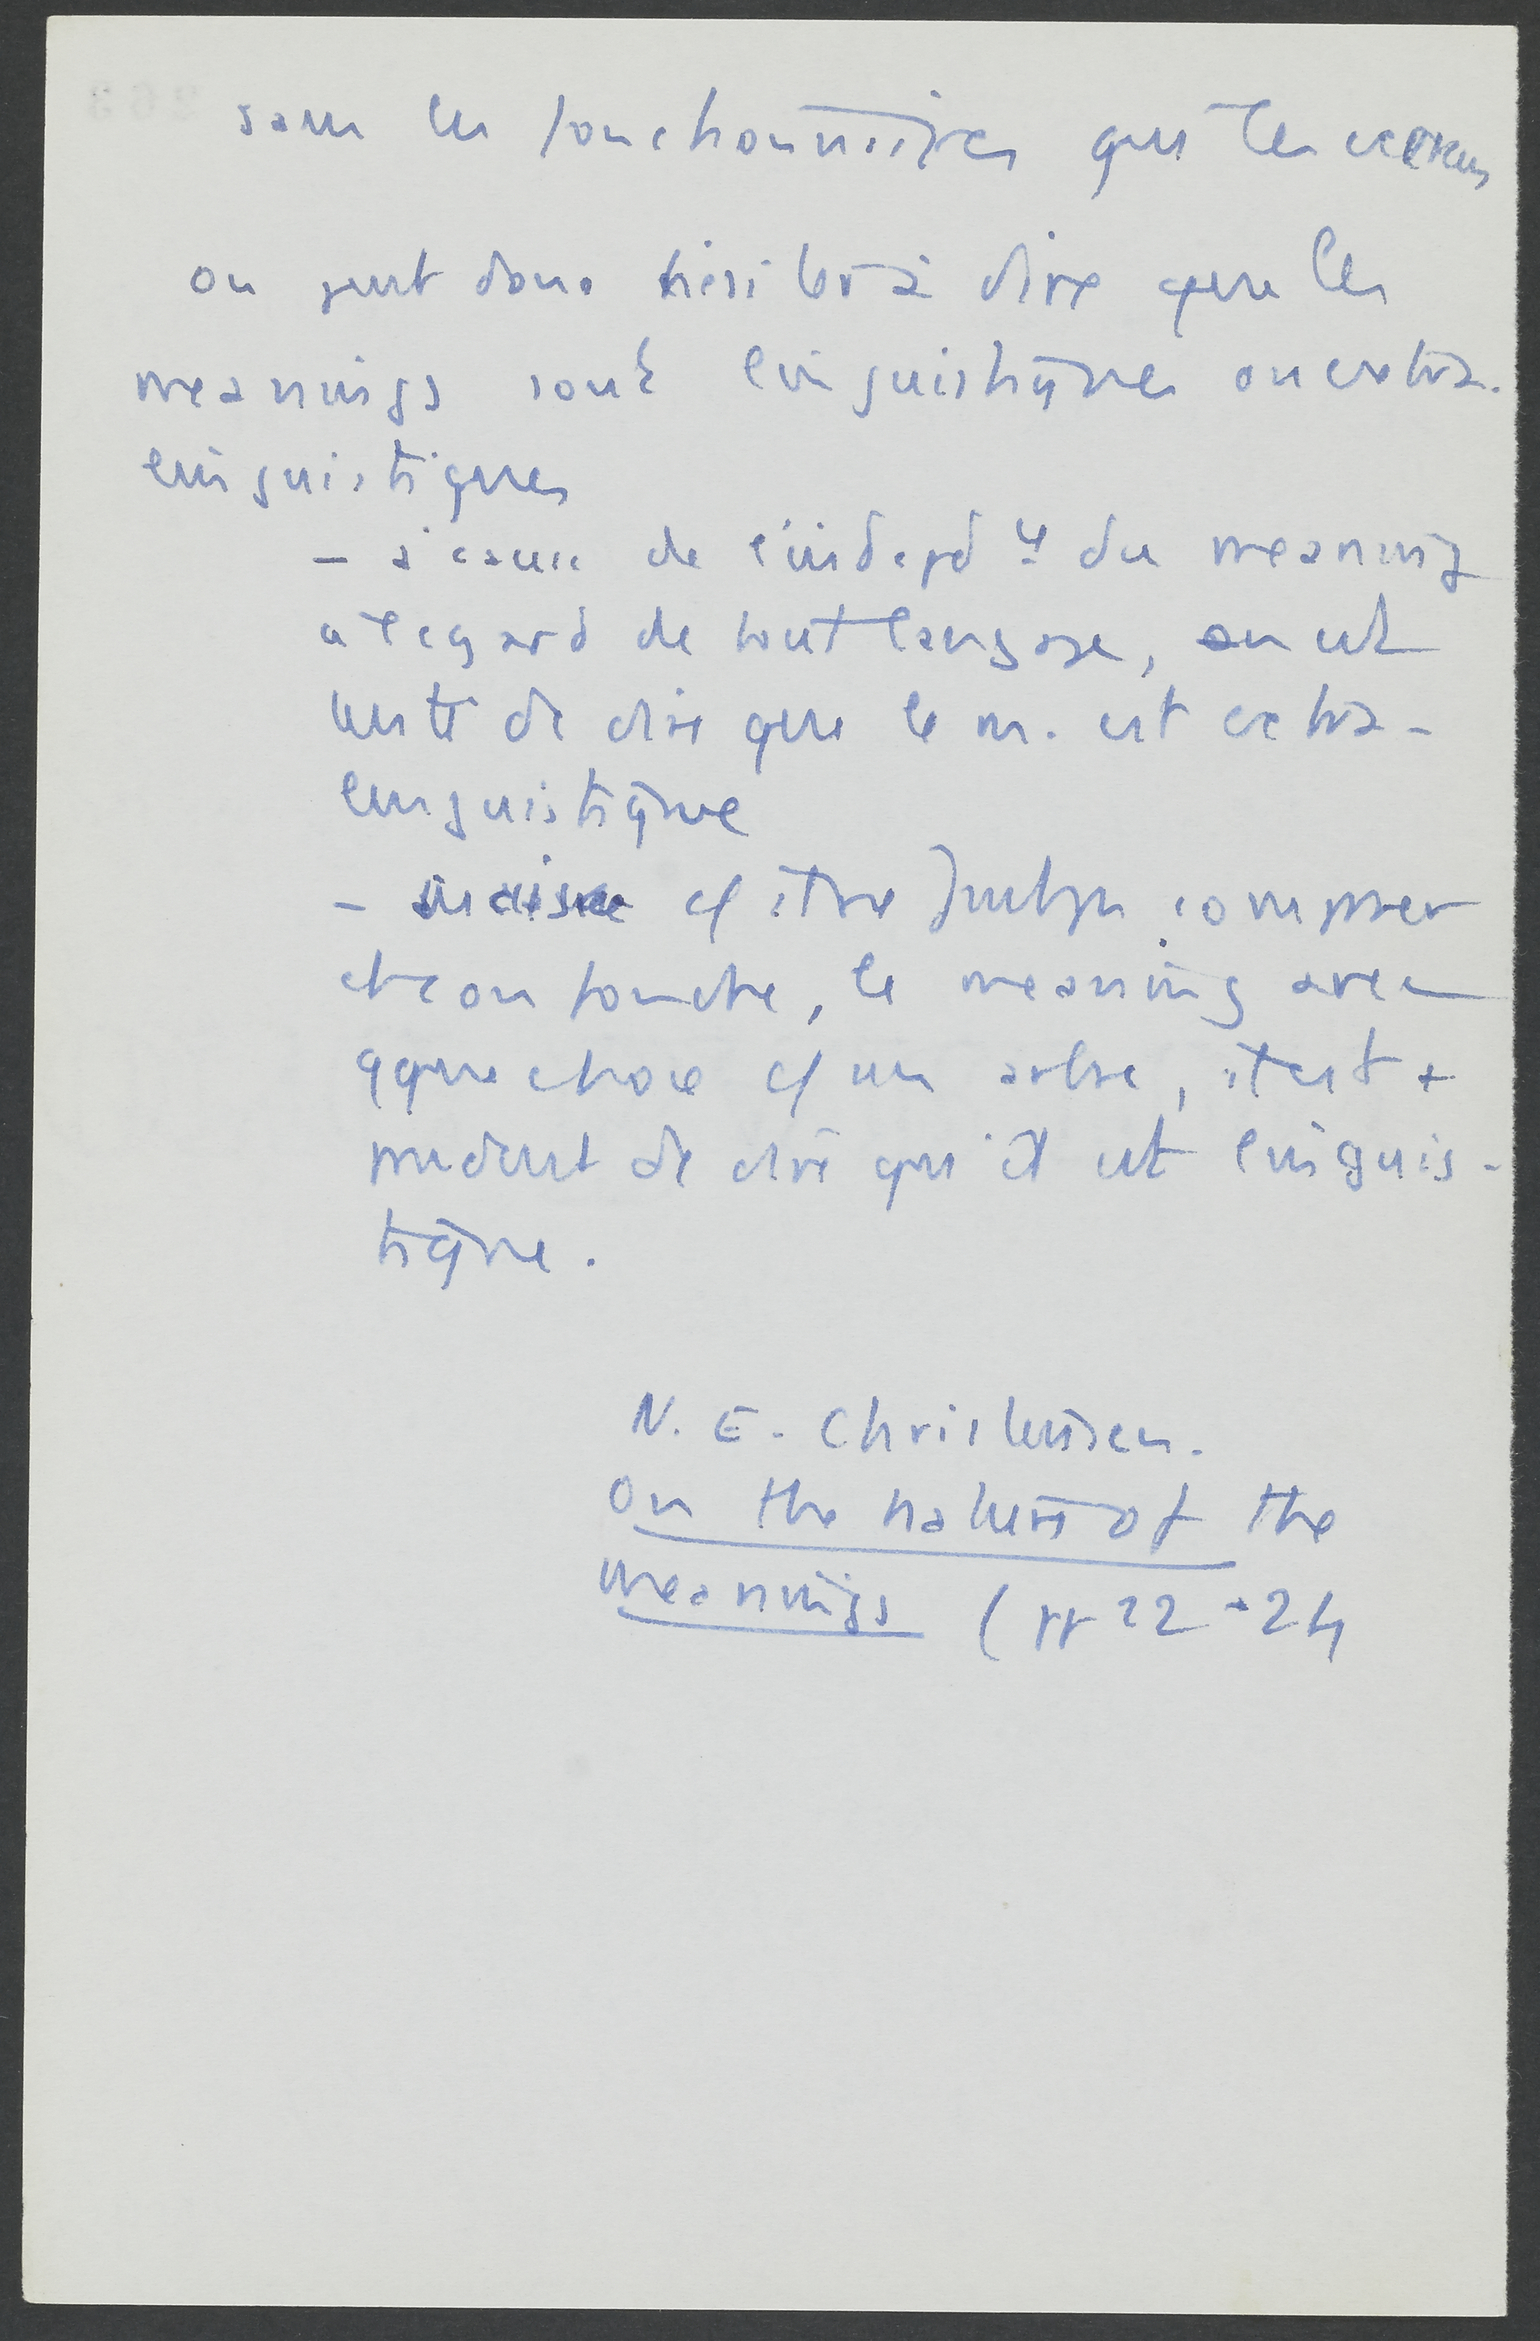 sans les fonctionnaires qui les exercent
on peut donc hésiter à dire que les
meanings sont linguistiques ou extra-
linguistiques
- à cause de l'indepdce du meaning
à l'égard de tout langage, on est
tenté de dire que le m. est extra-
linguistique
- mais c/ être comparer
et confondre, le meaning avec
qque chose c/ un arbre, il est +
prudent de dire qu'il est linguis-
tique.
N. E. Christensen.
On the nature of the
meanings (pp 22-24